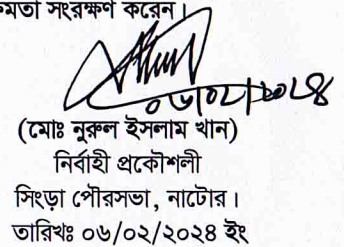 ক্ষমতা সংরক্ষণ করেন।
০৬/০২/২০২৪
(মোঃ নুরুল ইসলাম খান)
নির্বাহী প্রকৌশলী
সিংড়া পৌরসভা, নাটোর।
তারিখঃ ০৬/০২/২০২৪ ইং